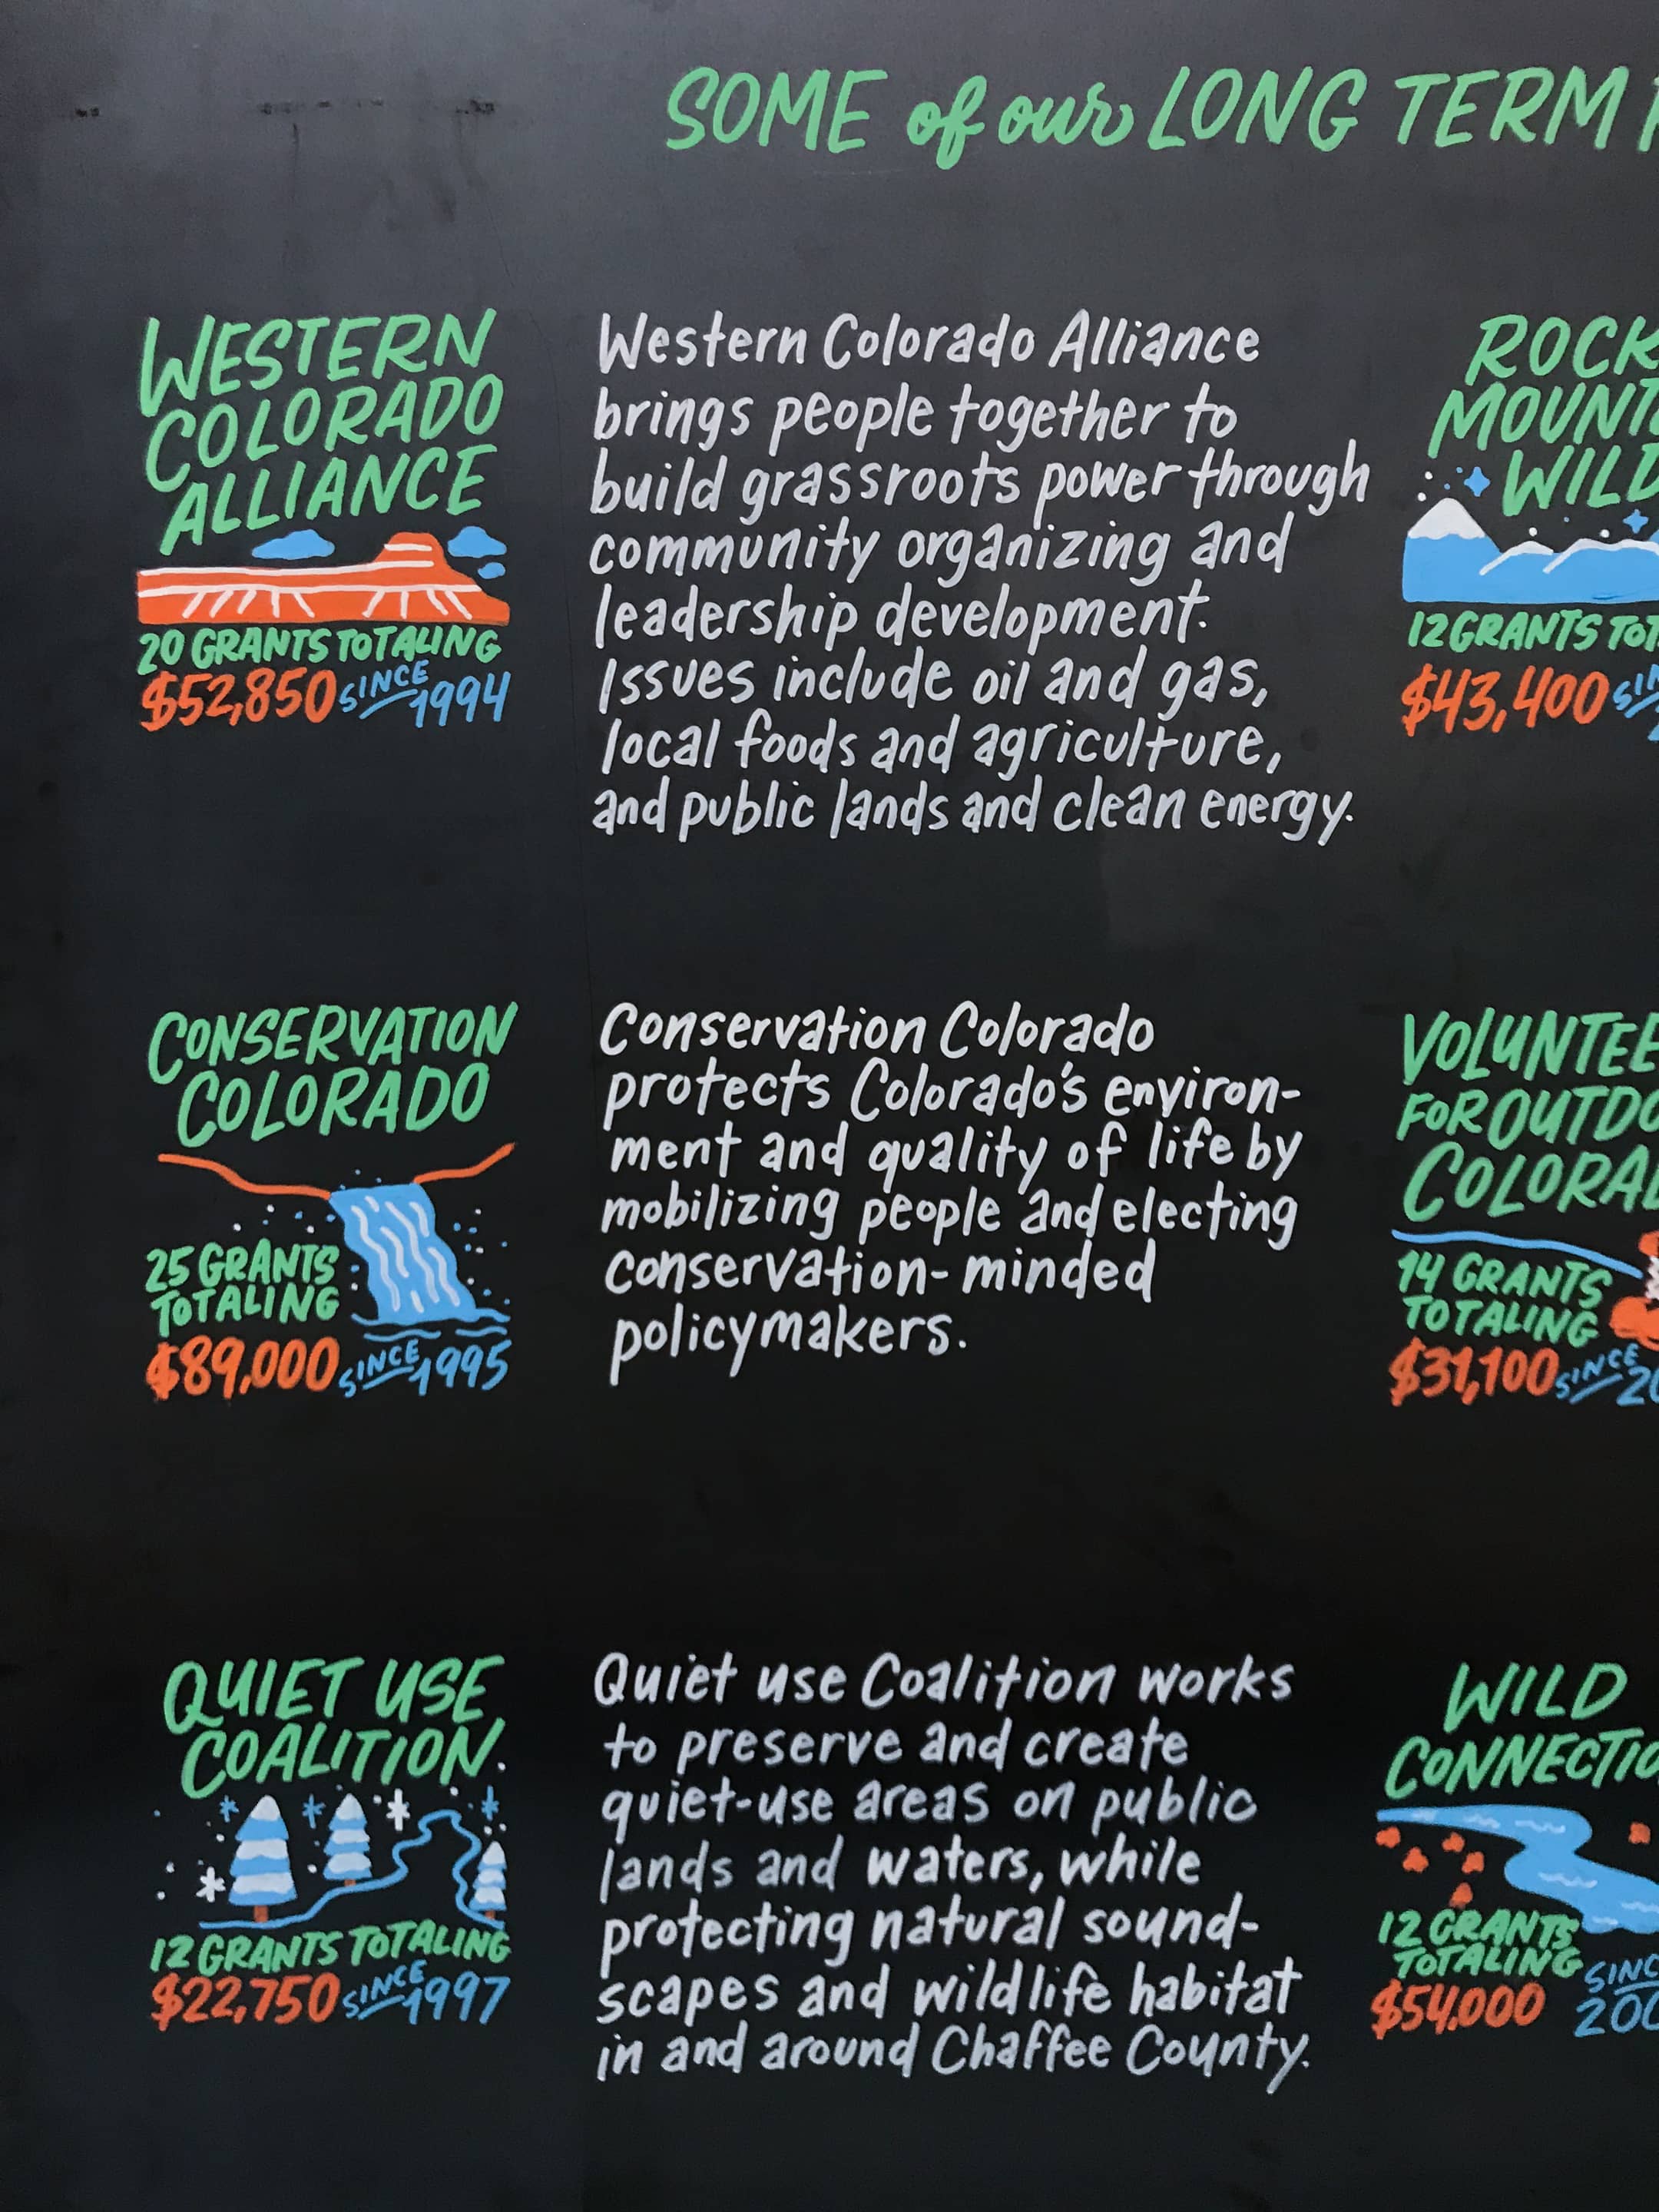 SOME of our LONG TERM
WESTERN
COLORADO
ALLIANCE
20 GRANTS TOTALING
$52,850 SINCE 1994
Western Colorado Alliance
brings people together to
build grassroots power through
community organizing and
leadership development.
Issues include oil and gas,
local foods and agriculture,
and public lands and clean energy.
ROCK
MOUNT
WILD
12 GRANTS TOT
$43,400 SIN
CONSERVATION
COLORADO
25 GRANTS
TOTALING
$89,000 SINCE 1995
Conservation Colorado
protects Colorado's environ-
ment and quality of life by
mobilizing people and electing
conservation-minded
policymakers.
VOLUNTEE
FOR OUTDO
COLORA
14 GRANTS
TOTALING
$31,100 SINCE 20
QUIET USE
COALITION
12 GRANTS TOTALING
$22,750 SINCE 1997
Quiet use Coalition works
to preserve and create
quiet-use areas on public
lands and waters, while
protecting natural sound-
scapes and wildlife habitat
in and around Chaffee County.
WILD
CONNECTIO
12 GRANTS
TOTALING
$54,000 SINC
200